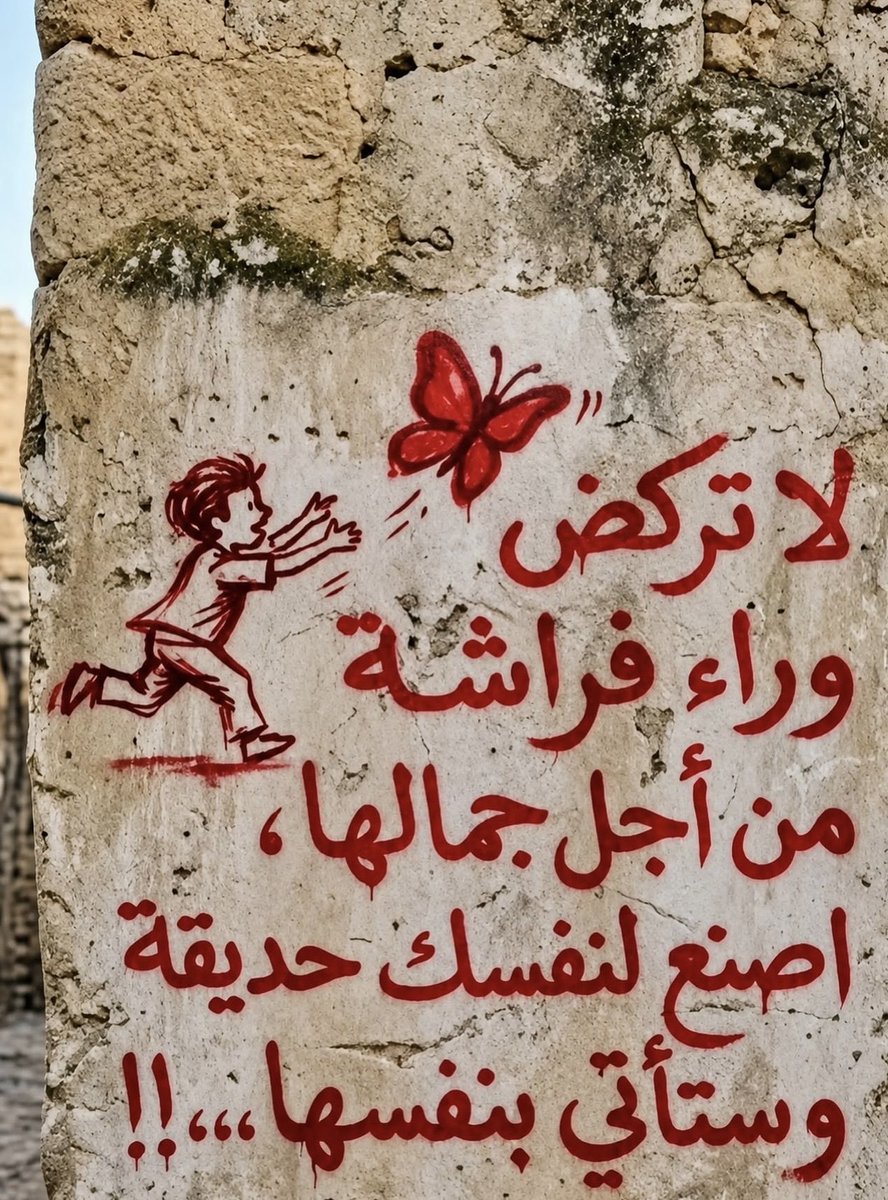 لا تركض
وراء فراشة
من أجل جمالها،
اصنع لنفسك حديقة
وستأتي بنفسها،،،،!!